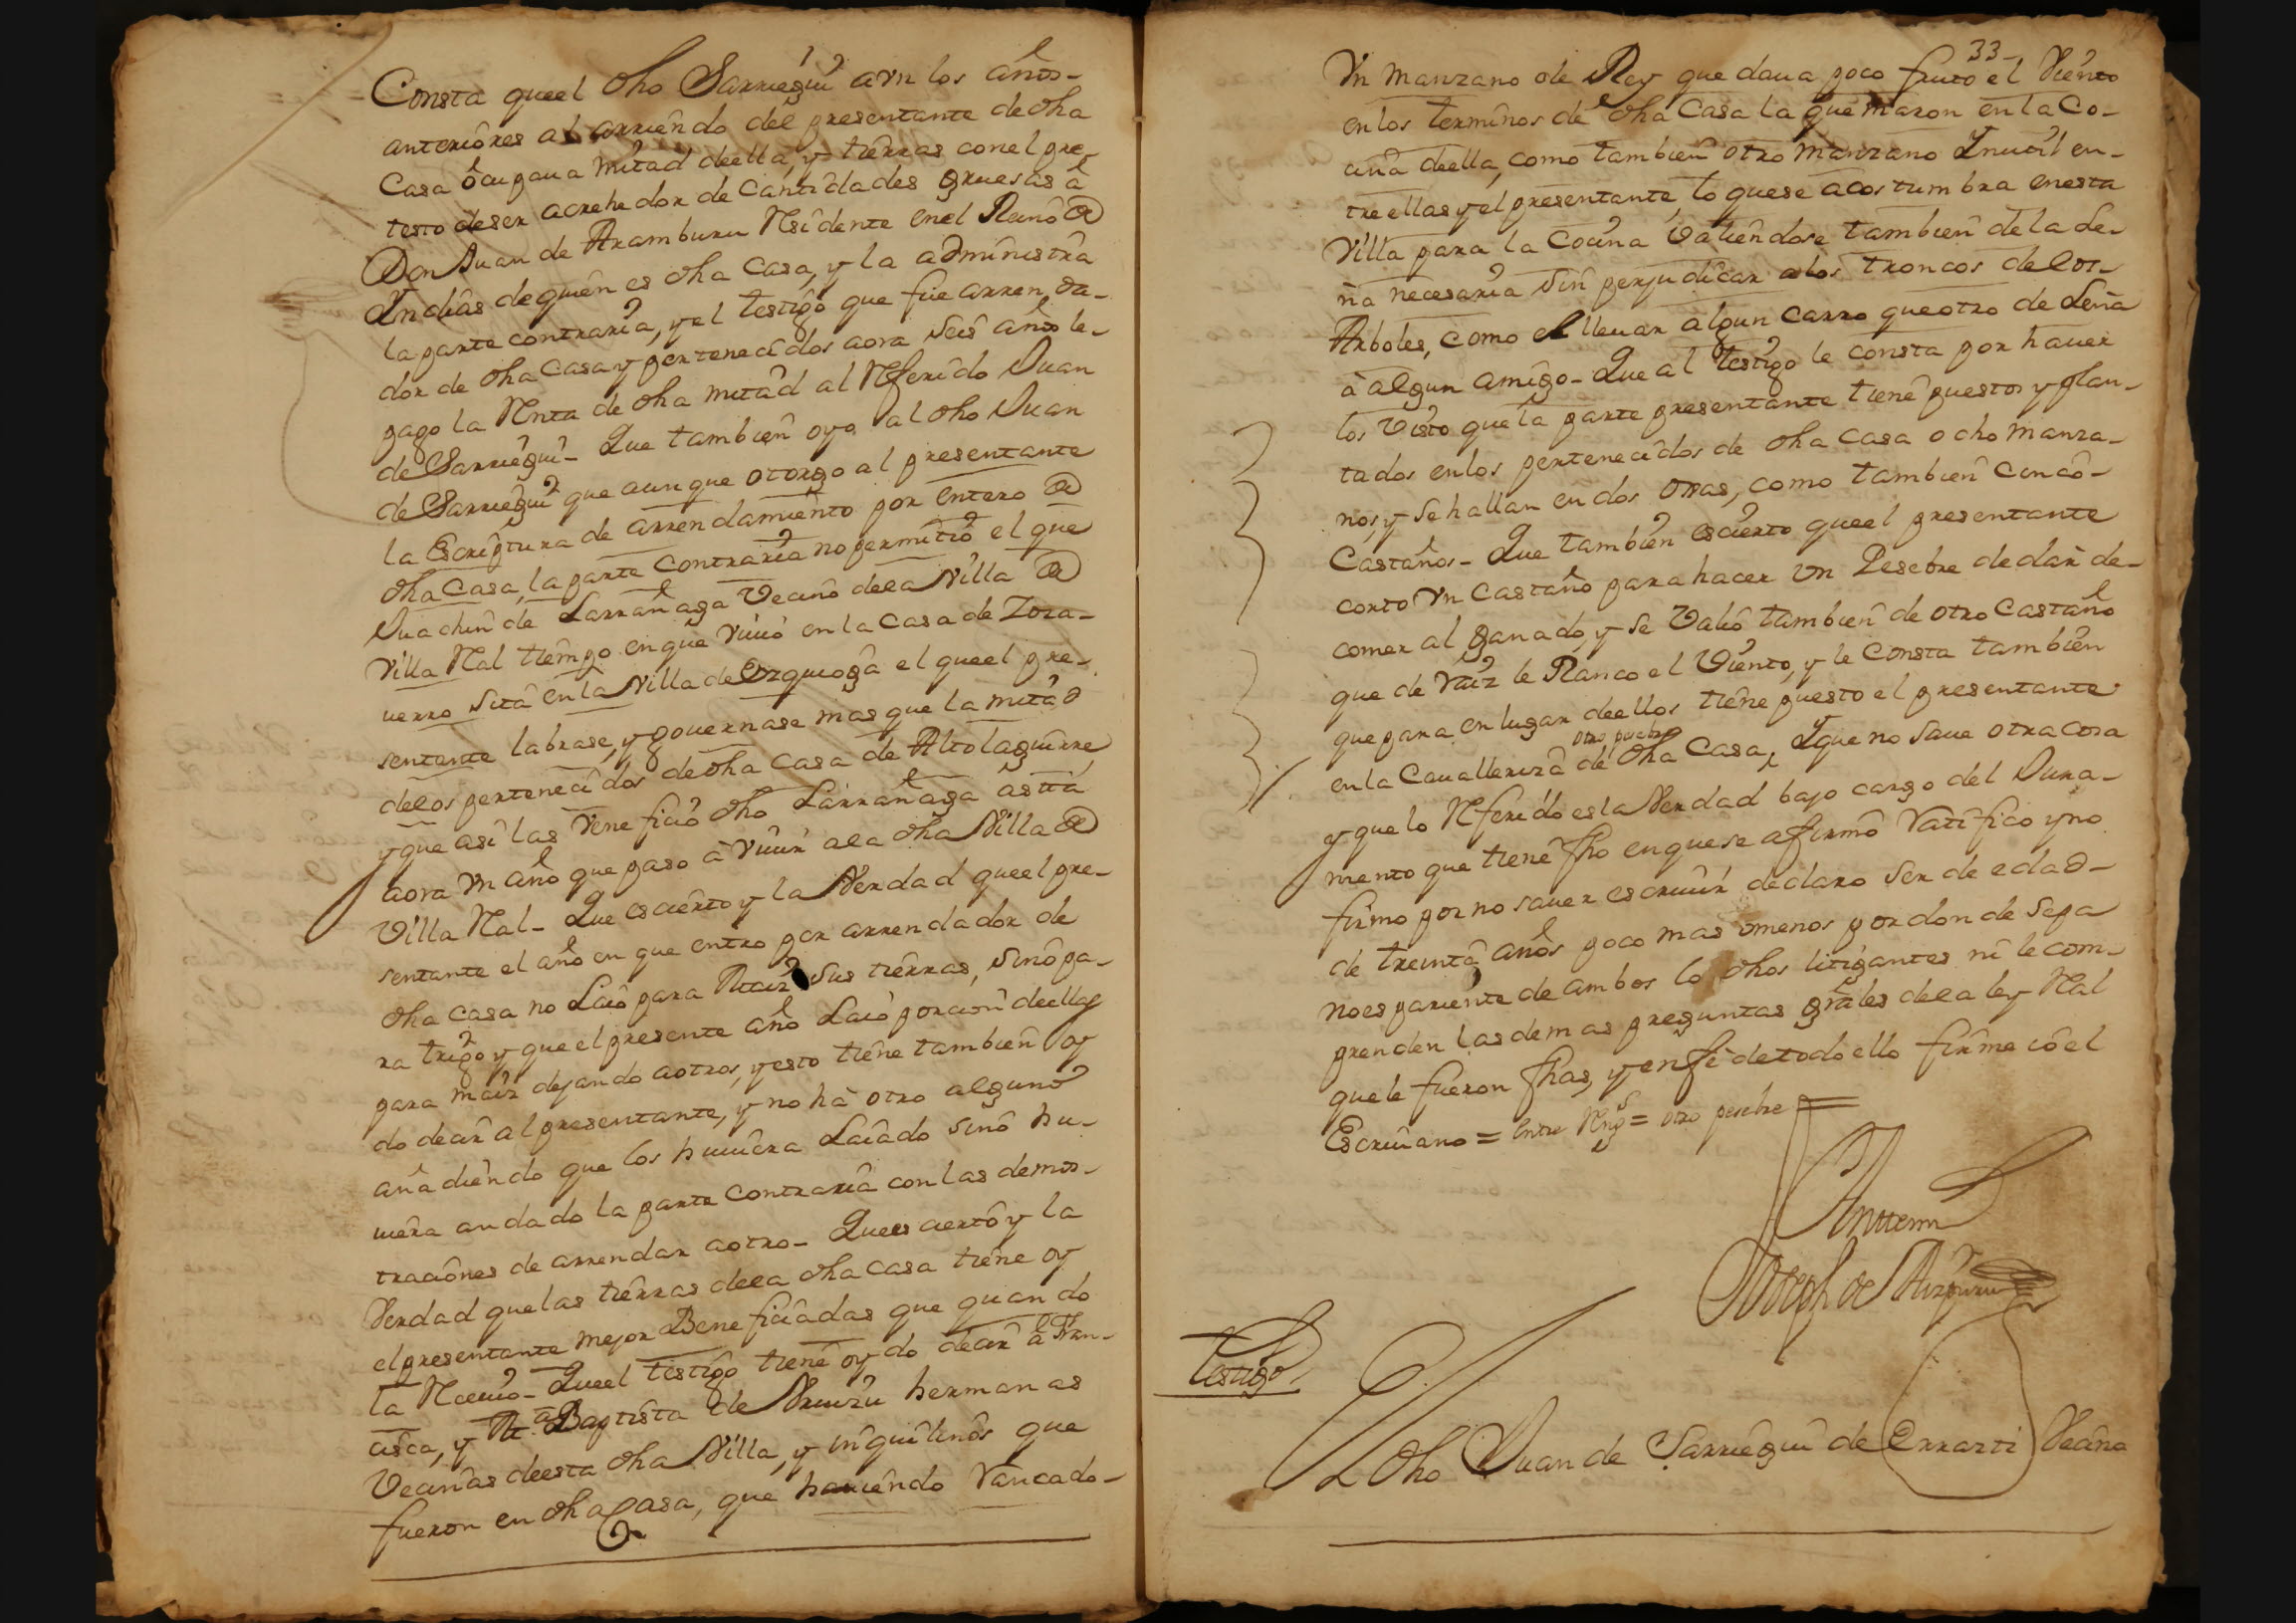 Consta queel dho Sarriegui avn los años
anteriores al arriendo del presentante de dha
Casa ôcupaua mitad deella, y tierras conel pre-
testo deser acrehedor de Cantidades gruesas â
Don Juan de Aramburu Residente enel Reino de
Indias dequien es dha Casa, y la administra
la parte contraria, yel testigo que fue arrenda-
dor de dha Casa y pertenecidos aora seis años le-
pago la Renta de dha mitad al Referido Juan
de Sarriegui- Que tambien oyo al dho Juan
de Sarriegui que aunque otorgo al presentante
la Escriptura de arrendamiento por entero de
dha Casa, la parte Contraria no permitio el que
Juachin de Larrañaga Vecino dela Villa de
Villa Real tiempo enque viuio en la Casa de Zoza-
uerro sita en la Villa de Ezquioga el queel pre-
sentante labrase, y gouernase mas que la mitad
delos pertenecidos de dha Casa de Altolaguirre
y que asi las Veneficio dho Larrañaga asta
aora vn año que paso â viuir ala dha Villa de
Villa Real- Que es cierto y la Verdad queel pre-
sentante el año en que entro por arrendador de
dha casa no Laio para Maiz sus tierras, sino pa-
ra trigo y que el presente año Laio porcion deellas
para maiz dejando aotros, yesto tiene tambien oy
do decir al presentante, y no hà otro alguno
añadiendo que los huuiera Laiado sino hu-
uiera andado la parte Contraria con las demos-
traciones de arrendar aotro- Quees cierto y la
Verdad que las tierras dela dha casa tiene oy
el presentante mejor Beneficiadas que quando
la Reciuio- Queel testigo tiene oydo decir â Fran-
cisca, y Mª Baptista de Vrruizu hermanas
Vecinas deesta dha Villa, y inquilinos que
fueron en dha Casa, que hauiendo Rancado-
33-
Vn manzano de Rey que daua poco fruto el Viento
en los terminos de dha Casa la quemaron en la Co-
cina deella, como tambien otro manzano Inutil en-
tre ellas y el presentante, lo quese acostumbra enesta
Villa para la Cocina Valiendose tambien de la Le-
ña necesaria sin perjudicar a los troncos de los
Arboles, como el lleuar algun carro queotro de Leña
à algun amigo- Que al testigo le consta por hauer
los Visto que la parte presentante tiene puestos y plan-
tados en los pertenecidos de dha casa ocho manza-
nos, y se hallan en dos ojas, como tambien cinco-
Castaños- Que tambien escierto queel presentante
corto Vn Castaño para hacer vn Pesebre de dar de-
comer al ganado, y se Valio tambien de otro Castaño
que de raiz le Ranco el Viento, y le Consta tambien
que para en lugar deellos tiene puesto el presentante
otro pesebre
en la Caualleriza de dha Casa, Y que no saue otra cosa
y que lo Referido es la Verdad bajo cargo del Jura-
mento que tiene fho en que se afirmô Ratifico y no
firmo por no sauer escriuir declaro ser de edad
de treinta años poco mas omenos y ordon de sepa
noes pariente de ambos lo dhos litigantes ni le com-
prenden las demas preguntas grales dela ley Real
que le fueron fhas, y en fè de todo ello firme io el
Escriuano = entre Rengs = otro pesebre =
Antemi
Joseph de Aizpuru
Testigo
El dho Juan de Sarriegui de Errazti Vecino